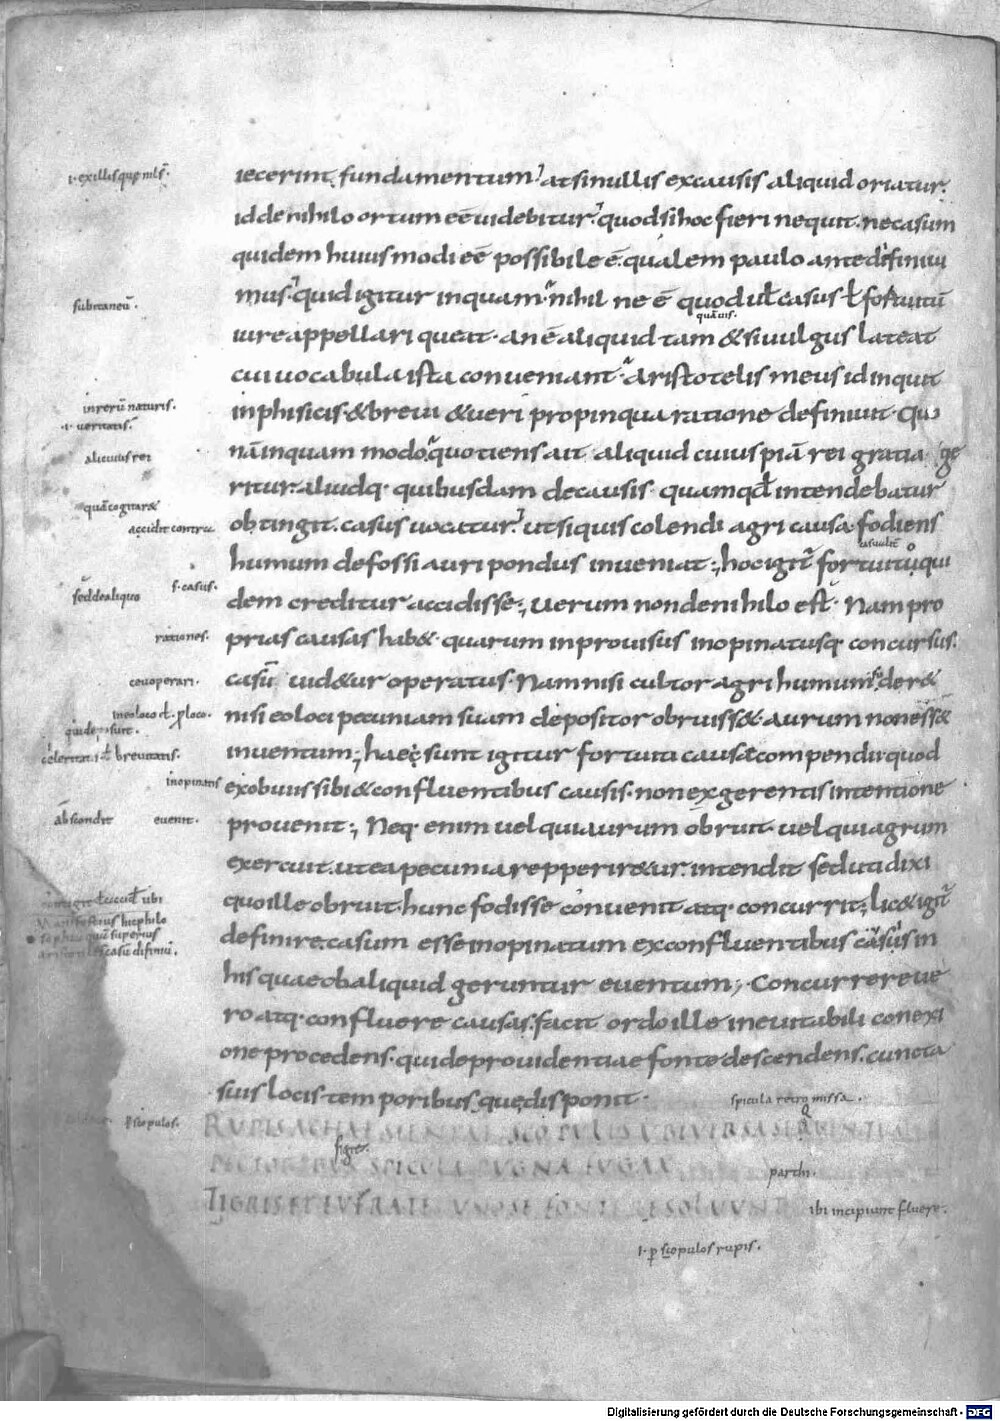 iecerint fundamentum. at si nullis ex causis aliquid oriatur.
.i. ex illis que nulł.
id de nihilo ortum eē uidebitur. quod si hoc fieri nequit. ne casum
quidem huius modi eē possibile ē. qualem paulo ante difiniui
mus. quid igitur inquam. nihil ne ē quod ul casus ł fortuitū
subitaneū.
quāuis.
iure appellari queat. an ē aliquid tam & si uulgus lateat
cui uocabula ista conueniant. Aristotelis meus id inquit
in phisicis & breui & ueri propinqua ratione definiuit. Quo
in rerū naturis.
.i. ueritatis.
nā inquam modo. quotiens ait aliquid cuiuspiā rei gratia ge
alicuius rei
ritur. aliudq. quibusdam de causis quam qd intendebatur
quā cogitar&
obtingit. casus uocatur. ut si quis colendi agri causa fodiens
accidit contra
casualit
humum defossi auri pondus inueniat; hoc igit fortuitu qui
dem creditur accidisse; uerum non de nihilo est. Nam pro
sed de aliquo
s. casus.
prias causas hab& quarum inprouisus inopinatusq concursus.
rationes.
casū uid&ur operatus. Nam nisi cultor agri humum foder&
cooperari.
nisi eo loci pecuniam suam depositor obruiss& aurum non ess&
in eo loco ł. p loco.
qui deposuit.
inuentum; haec sunt igitur fortuiti causa compendii quod
celeritatis ł breuitatis.
ex obuiis sibi & confluentibus causis. non ex gerentis intentione
inopinatis
prouenit; Neq. enim uel qui aurum obruit. uel qui agrum
abscondit
euenit.
exercuit. ut ea pecunia repperir&ur. intendit sed uti dixi
quo ille obruit. hunc fodisse conuenit atq. concurrit; lic& igit
ubi
Manifestius hic philo
sophia quā superius
aristotiles casū difiniuī.
definire. casum esse inopinatum ex confluentibus causis in
his quae ob aliquid geruntur euentum; Concurrere ue
ro atq. confluere causas. facit ordo ille ineuitabili conexi
one procedens. qui de prouidentiae fonte descendens. cuncta
suis locis temporibusque disponit.
spicula retro missa.
p scopulos.
RUPIS ACHAEMENIAE SCOPULIS UBI VERSA SEQUENTUM
figit.
PECTORIBUS SPICULA PUGNA FUGAX
parthi.
TIGRIS ET EUFRATE UNO SE FONTE RESOLUUNT
ibi incipiunt fluere.
.i. p scopulos rupis.